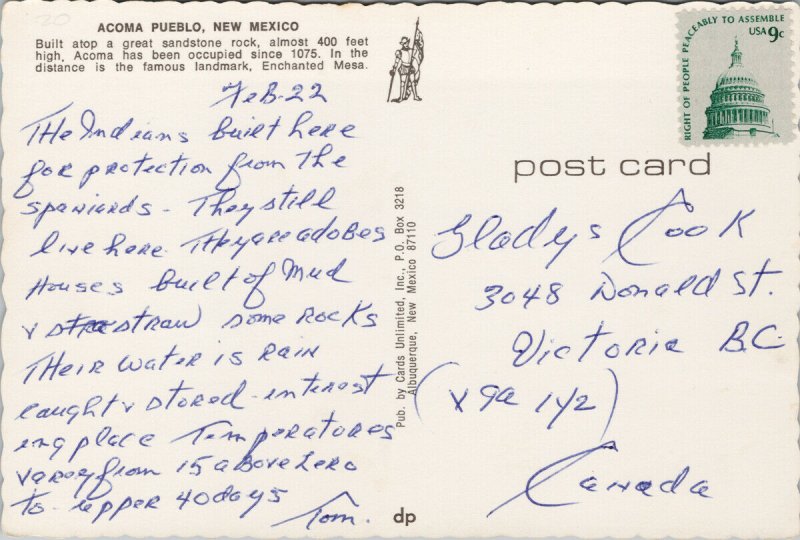 ACOMA PUEBLO, NEW MEXICO
Built atop a great sandstone rock, almost 400 feet
high, Acoma has been occupied since 1075. In the
distance is the famous landmark, Enchanted Mesa.
FeB-22
THe Indians built here
for protection from The
spaniards - They still
live here. They are adobes
Houses built of Mud
& straw some Rocks
THeir water is RAiN
caught & stored - interest
ing place Temperatores
varey from 15 above Zero
to upper 40 days
Tom.
Pub. by Cards Unlimited, Inc., P.O. Box 3218
Albuquerque, New Mexico 87110
dp
RIGHT OF PEOPLE PEACEABLY TO ASSEMBLE
USA 9c
post card
Gladys Cook
3048 Donald St.
Victoria B.C.
(V9A 1Y2)
Canada